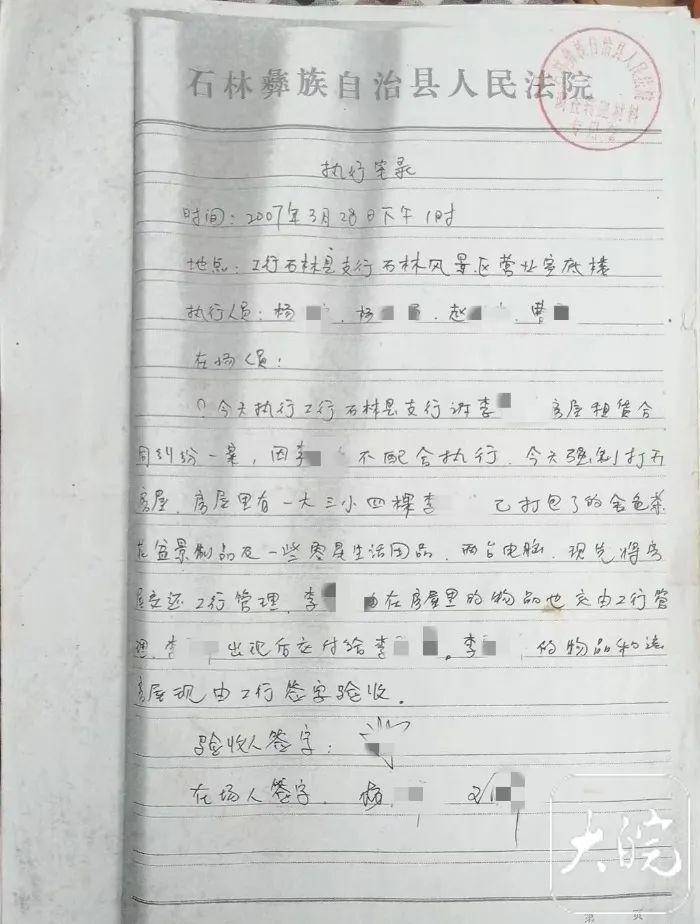 石林彝族自治县人民法院
执行笔录
时间：2007年3月28日下午1时
地点：工行石林县支行石林风景区营业室底楼
执行人员：杨 、杨 、赵 、曹
在场人员：
？今天执行工行石林县支行诉李 房屋租赁合
同纠纷一案，因李 不配合执行，今天强制打开
房屋，房屋里有一大三小四棵李 已打包了的金色茶
花盆景制品及一些零星生活用品，两台电脑，现先将房
屋交还工行管理，李 在房屋里的物品也交由工行管
理，李 出现后交付给李 。李 的物品和该
房屋现由工行签字验收。
验收人签字：
在场人签字： 杨
大皖
第 页